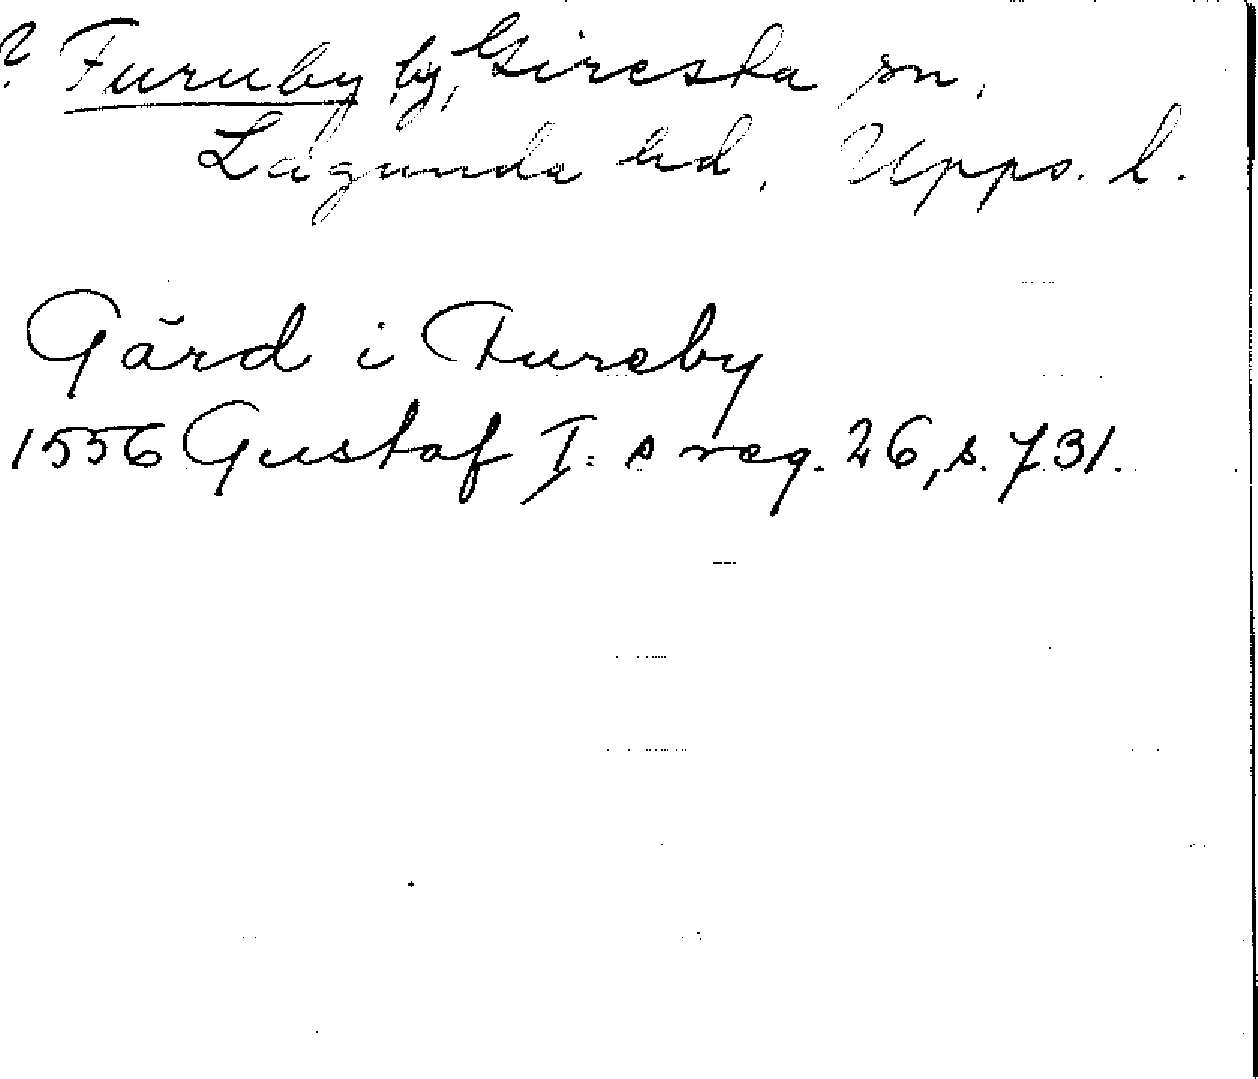 ? Furuby by, Giresta sn,
Lagunda hd, Upps. l.
Gård i Fureby
1556 Gustaf I:s reg. 26, s. 731.